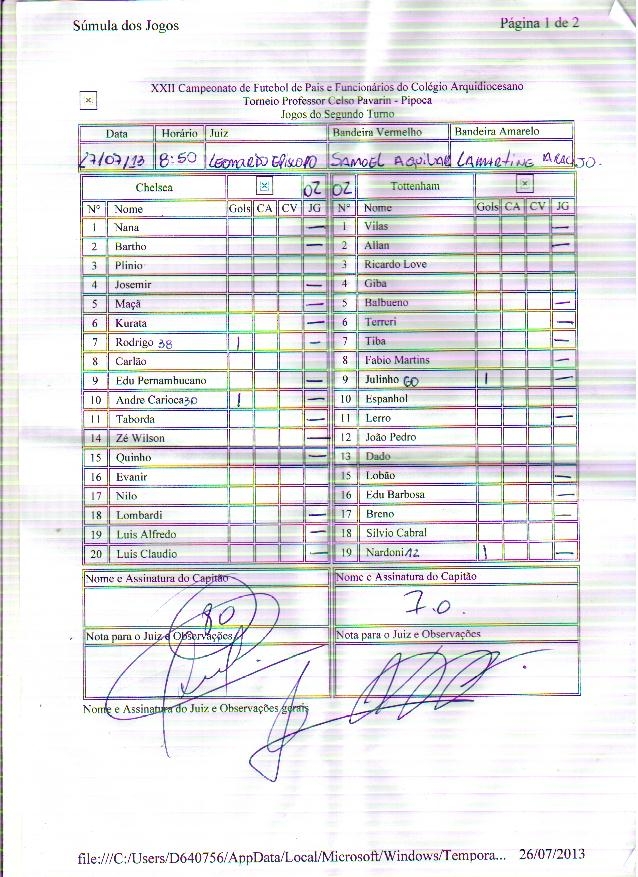 Súmula dos Jogos Página 1 de 2
XXII Campeonato de Futebol de Pais e Funcionários do Colégio Arquidiocesano
Torneio Professor Celso Pavarin - Pipoca
Jogos do Segundo Turno
Data Horário Juiz Bandeira Vermelho Bandeira Amarelo
27/07/13 8:50 LEONARDO EPISCOPO SAMOEL AQUILAR LAMARTINE ARAUJO.
Chelsea 02 02 Tottenham
Nº Nome Gols CA CV JG Nº Nome Gols CA CV JG
1 Nana — 1 Vilas —
2 Bartho — 2 Allan —
3 Plinio 3 Ricardo Love
4 Josemir — 4 Giba
5 Maçã — 5 Balbueno —
6 Kurata — 6 Terreri —
7 Rodrigo 38 | — 7 Tiba —
8 Carlão 8 Fabio Martins —
9 Edu Pernambucano — 9 Julinho 60 | —
10 Andre Carioca 30 | — 10 Espanhol
11 Taborda — 11 Lerro —
14 Zé Wilson — 12 João Pedro
15 Quinho — 13 Dado
16 Evanir 15 Lobão —
17 Nilo 16 Edu Barbosa —
18 Lombardi — 17 Breno —
19 Luis Alfredo — 18 Silvio Cabral
20 Luis Claudio — 19 Nardoni 12 | —
Nome e Assinatura do Capitão Nome e Assinatura do Capitão
80 7.0.
Nota para o Juiz e Observações Nota para o Juiz e Observações
Nome e Assinatura do Juiz e Observações gerais
file:///C:/Users/D640756/AppData/Local/Microsoft/Windows/Tempora... 26/07/2013